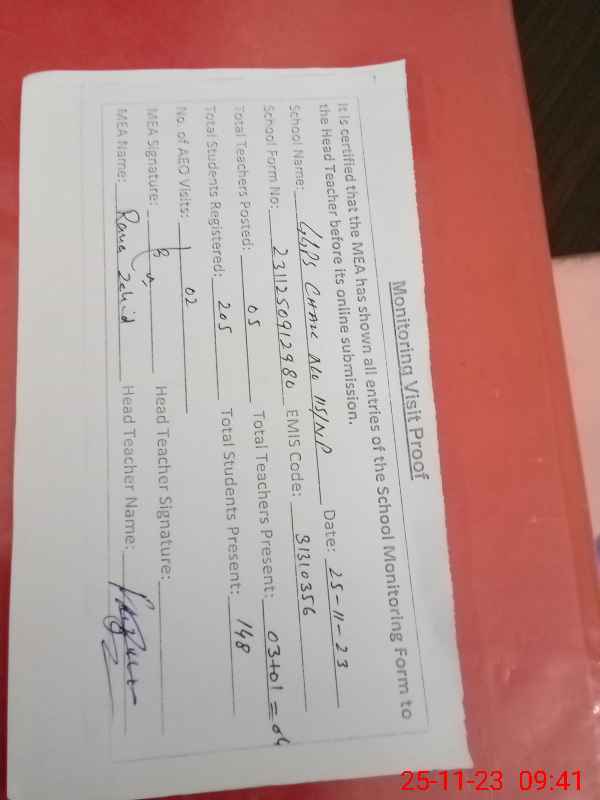 Monitoring Visit Proof
It is certified that the MEA has shown all entries of the School Monitoring Form to
the Head Teacher before its online submission.
School Name: GGPS CHAK No 115/NP Date: 25-11-23
School Form No: 2311250912980 EMIS Code: 31310356
Total Teachers Posted: 05 Total Teachers Present: 03+01=04
Total Students Registered: 205 Total Students Present: 148
No. of AEO Visits: 02
MEA Signature: Head Teacher Signature:
MEA Name: Rana Zahid Head Teacher Name:
25-11-23 09:41